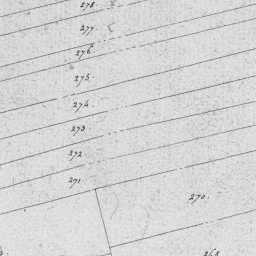 278
277
276
275
274
273
272
271
270.
268